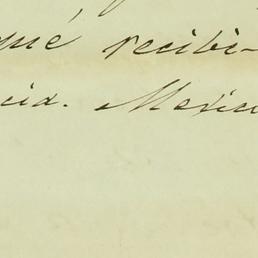 qué recibi-
cia. Mexic